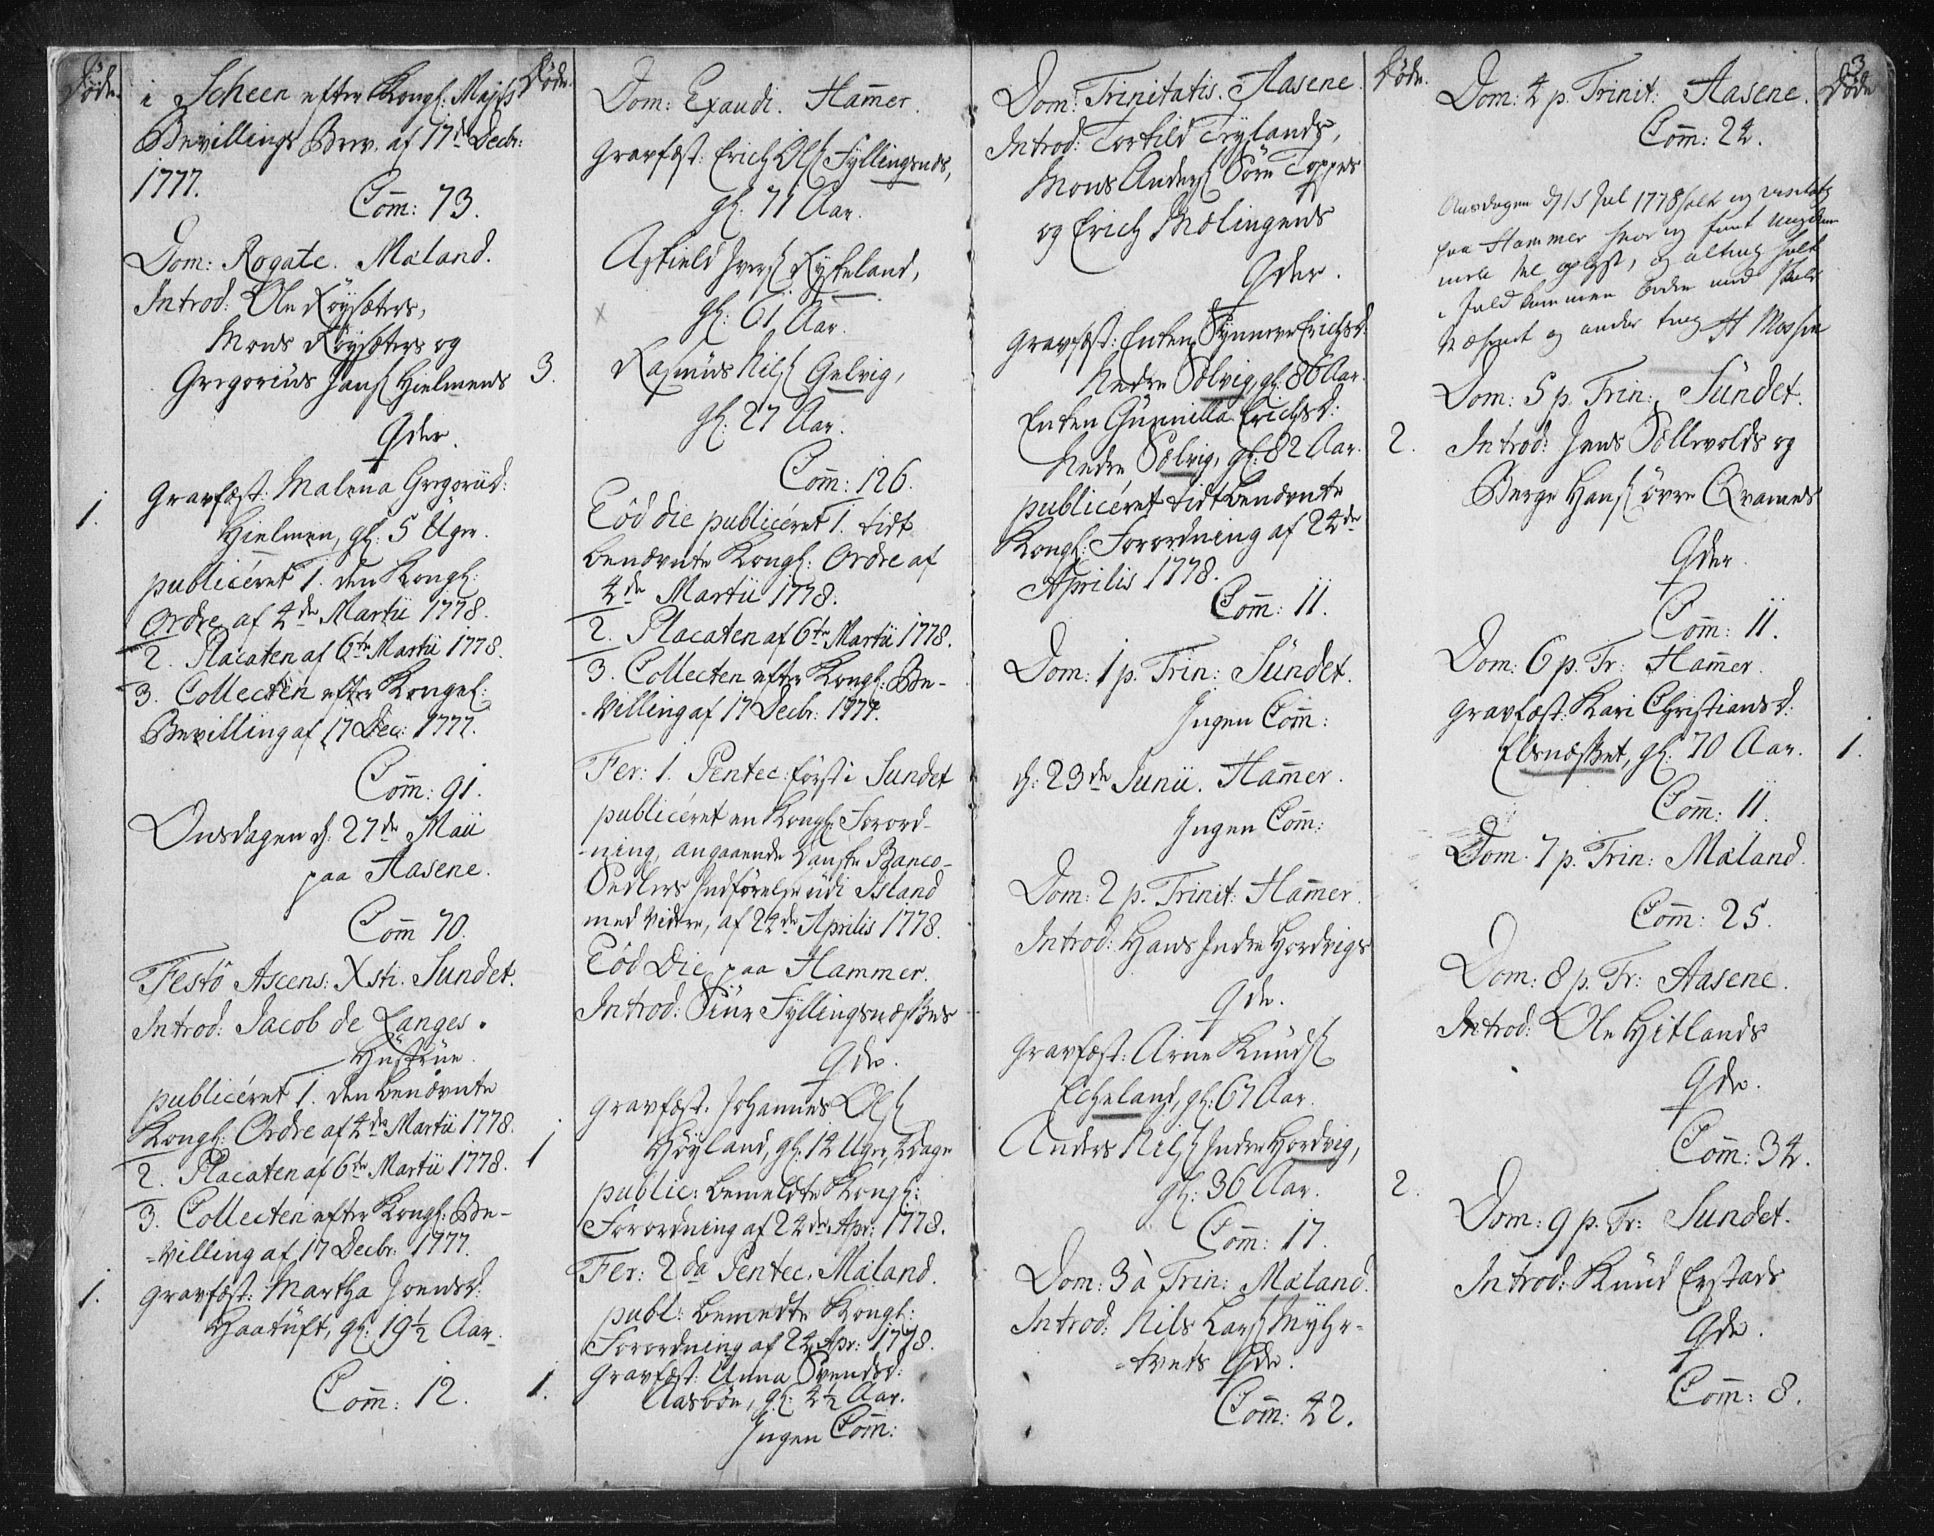 Døde.
i Scheen efter Kongl: Majts
Bevillings Brev. af 17de Decbr:
1777.
Com̄: 73.
Dom: Rogate. Mæland.
Introd: Ole Røysæters,
Mons Røysæters og
Gregorius Hans Hielmens
Qder.
Gravfæst: Malena Gregoriid:
1.
Hielmen, gl: 5 Uger.
publicéret 1. den Kongl:
Ordre af 4de Martii 1778.
2. Placaten af 6te Martii 1778.
3. Collecten efter Kongel:
Bevilling af 17 Dec: 1777.
Com̄: 91.
Onsdagen d: 27de Maii
paa Aasene.
Com̄ 70.
Festo Ascens: Xsti. Sundet.
Introd: Jacob de Langes
Hustrue.
publicéret 1. den benævnte
Kongl: Ordre af 4de Martii 1778.
2. Placaten af 6te Martii 1778.
3. Collecten efter Kongl: Be-
-villing af 17 Decbr: 1777.
1.
Gravfæst: Martha Joensd:
Haatuft, gl: 19½ Aar.
Com̄: 12.
Døde.
Dom: Exaudi. Ham̄er.
Gravfæst: Erich Ols Fyllingsnes,
gl: 71 Aar.
Askield Ivers Rykeland,
gl: 61 Aar.
3.
Rasmus Nils Gelvig,
gl: 27 Aar.
Com̄: 126.
Eôd die publicéret 1. tidt
benævnte Kongl: Ordre af
4de Martii 1778.
2. Placaten af 6te Martii 1778.
3. Collecten efter Kongl: Be-
-villing af 17 Decbr: 1777.
Fer: 1. Pentec: først i Sundet
publicéret en Kongl: Forord-
-ning, angaaende danske Banco-
Sedlers Indførelse udi Island
med videre, af 24de Aprilis 1778.
Eôd Die paa Hammer.
Introd: Siur Fyllingsnæsses
Qde.
Gravfæst: Johannes Ols
1
Høyland, gl: 14 Uger, 4 dage
public: bemeldte Kongl:
Forordning af 24de Apr: 1778.
Fer: 2da Pentec. Mæland.
publ: bemeldte Kongl:
Forordning af 24 Apr: 1778.
Gravfæst: Anna Svendsd:
1.
Aasbøe, gl: 4½ Aar.
Ingen Com̄:
Dom: Trinitatis. Aasene.
Introd: Torkild Tylands,
Mons Anders Søre Toppes
og Erich Mælingens
Qder.
Gravfæst: Enken Synneve Erichsd:
Nedre Sølvig, gl: 86 Aar.
Enken Gunnilla Erichsd:
2.
Nedre Sølvig, gl: 82 Aar.
publicéret tidtbenævnte
Kongl: Forordning af 24de
Aprilis 1778.
Com̄: 11.
Dom: 1 p. Trin: Sundet.
Ingen Com̄:
d: 23de Junii. Ham̄er.
Ingen Com̄:
Dom: 2 p. Trinit: Ham̄er.
Introd: Hans Indre Hordvigs
Qde.
Gravfæst: Arne Knuds
Echeland, gl: 67 Aar.
Anders Nils Indre Hordvig,
2.
gl: 36 Aar.
Com̄: 17.
Dom: 3 à Trin: Mæland.
Introd: Nils Lars Myhr-
-tvets Qde.
Com̄: 42.
Døde.
3
Døde
Dom: 4 p. Trinit: Aasene.
Com̄: 24.
Onsdagen d 15 Jul 1778 holt
paa Hammer hvor
og
og
Dom: 5 p. Trin: Sundet.
Introd: Jens Sollevolds og
Berge Hans øvre Qvames
Qder.
Com̄: 11.
Dom: 6 p. Tr: Ham̄er.
Gravfæst: Kari Christiansd:
1.
Elsnæsset, gl: 70 Aar.
Com̄: 11.
Dom: 7 p. Trin: Mæland.
Com̄: 25.
Dom: 8 p. Tr: Aasene.
Introd: Ole Hitlands
Qde.
Com̄: 34.
Dom: 9 p. Tr: Sundet.
Introd: Knud Erstads
Qde.
Com̄: 8.